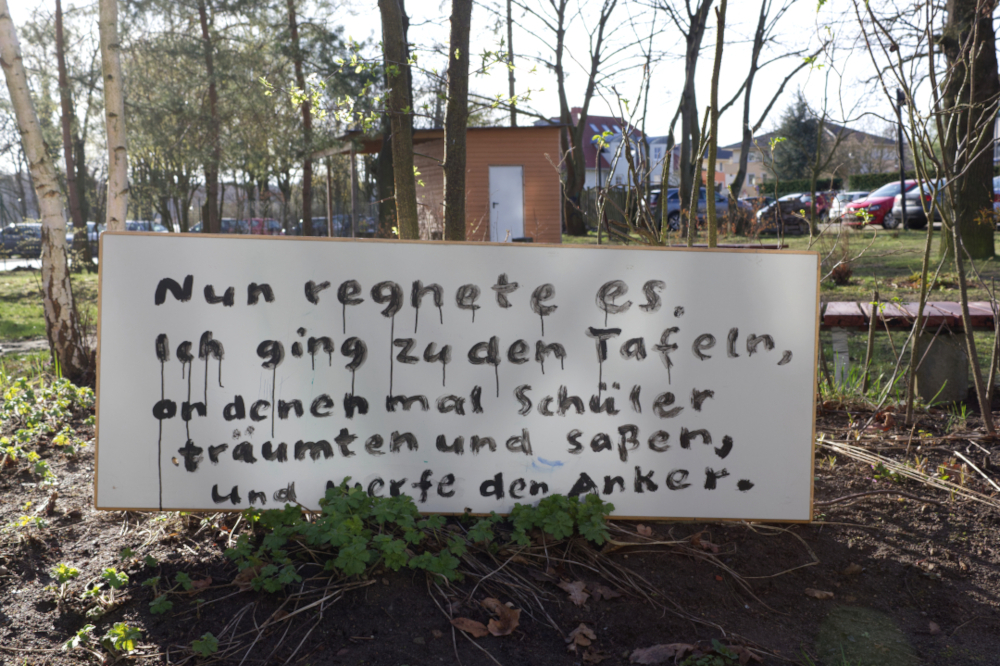 Nun regnete es.
Ich ging zu den Tafeln,
an denen mal Schüler
träumten und saßen,
und werfe den Anker.